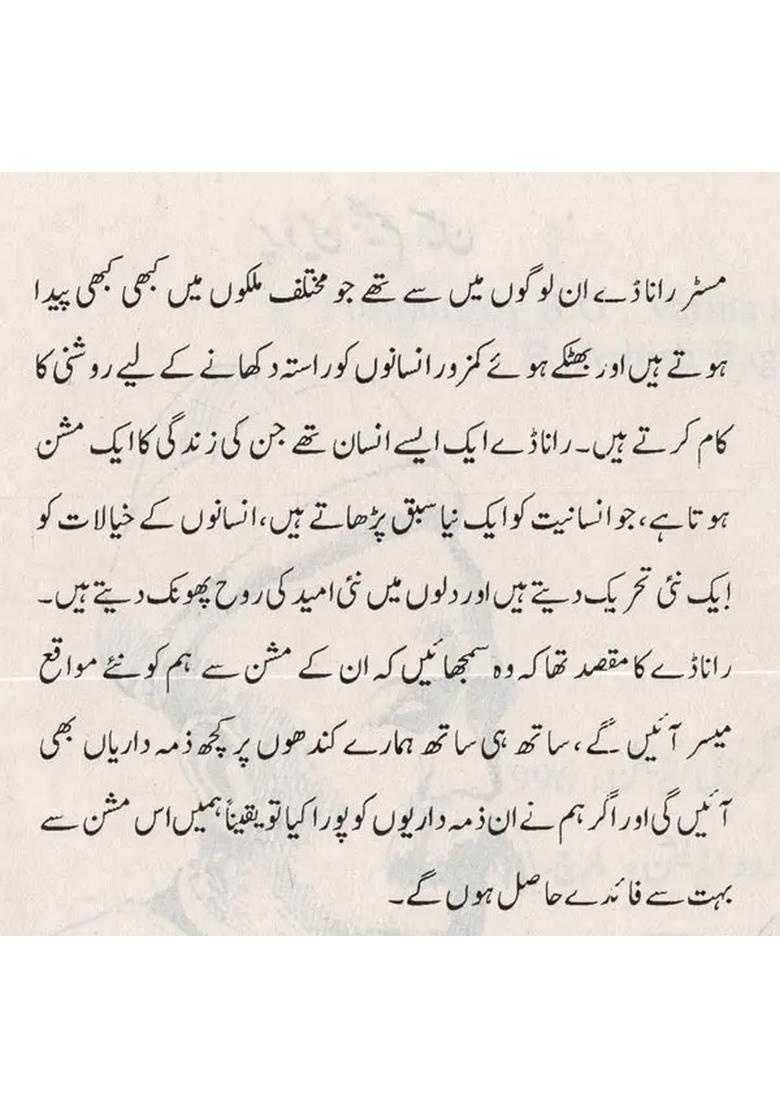 مسٹر راناڈے ان لوگوں میں سے تھے جو مختلف ملکوں میں کبھی کبھی پیدا
ہوتے ہیں اور بھٹکے ہوئے کمزور انسانوں کو راستہ دکھانے کے لیے روشنی کا
کام کرتے ہیں۔ راناڈے ایک ایسے انسان تھے جن کی زندگی کا ایک مشن
ہوتا ہے، جو انسانیت کو ایک نیا سبق پڑھاتے ہیں، انسانوں کے خیالات کو
ایک نئی تحریک دیتے ہیں اور دلوں میں نئی امید کی روح پھونک دیتے ہیں۔
راناڈے کا مقصد تھا کہ وہ سمجھائیں کہ ان کے مشن سے ہم کو نئے مواقع
میسر آئیں گے، ساتھ ہی ساتھ ہمارے کندھوں پر کچھ ذمہ داریاں بھی
آئیں گی اور اگر ہم نے ان ذمہ داریوں کو پورا کیا تو یقیناً ہمیں اس مشن سے
بہت سے فائدے حاصل ہوں گے۔